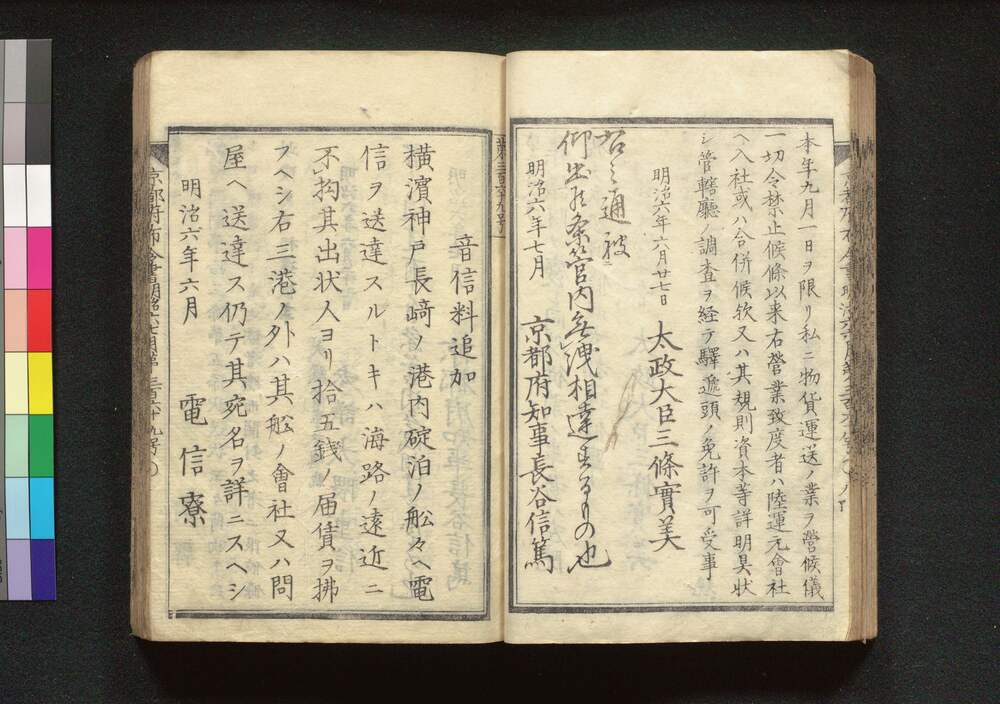 本年九月一日ヲ限リ私ニ物貨運送ノ業ヲ營候儀
一切令禁止候條以来右營業致度者ハ陸運元會社
ヘ入社或ハ合併候欤又ハ其規則資本等詳明具状
シ管轄廳ノ調査ヲ経テ驛逓頭ノ免許ヲ可受事
明治六年六月廿七日 太政大臣三條實美
右之通被
仰出候条管内無洩相達するもの也
明治六年七月 京都府知事長谷信篤
第三百六十九号
音信料追加
横濱神戸長﨑ノ港内碇泊ノ舩々ヘ電
信ヲ送達スルトキハ海路ノ遠近ニ
不拘其出状人ヨリ拾五銭ノ届賃ヲ拂
フヘシ右三港ノ外ハ其舩ノ會社又ハ問
屋ヘ送達ス仍テ其宛名ヲ詳ニスヘシ
明治六年六月 電信寮